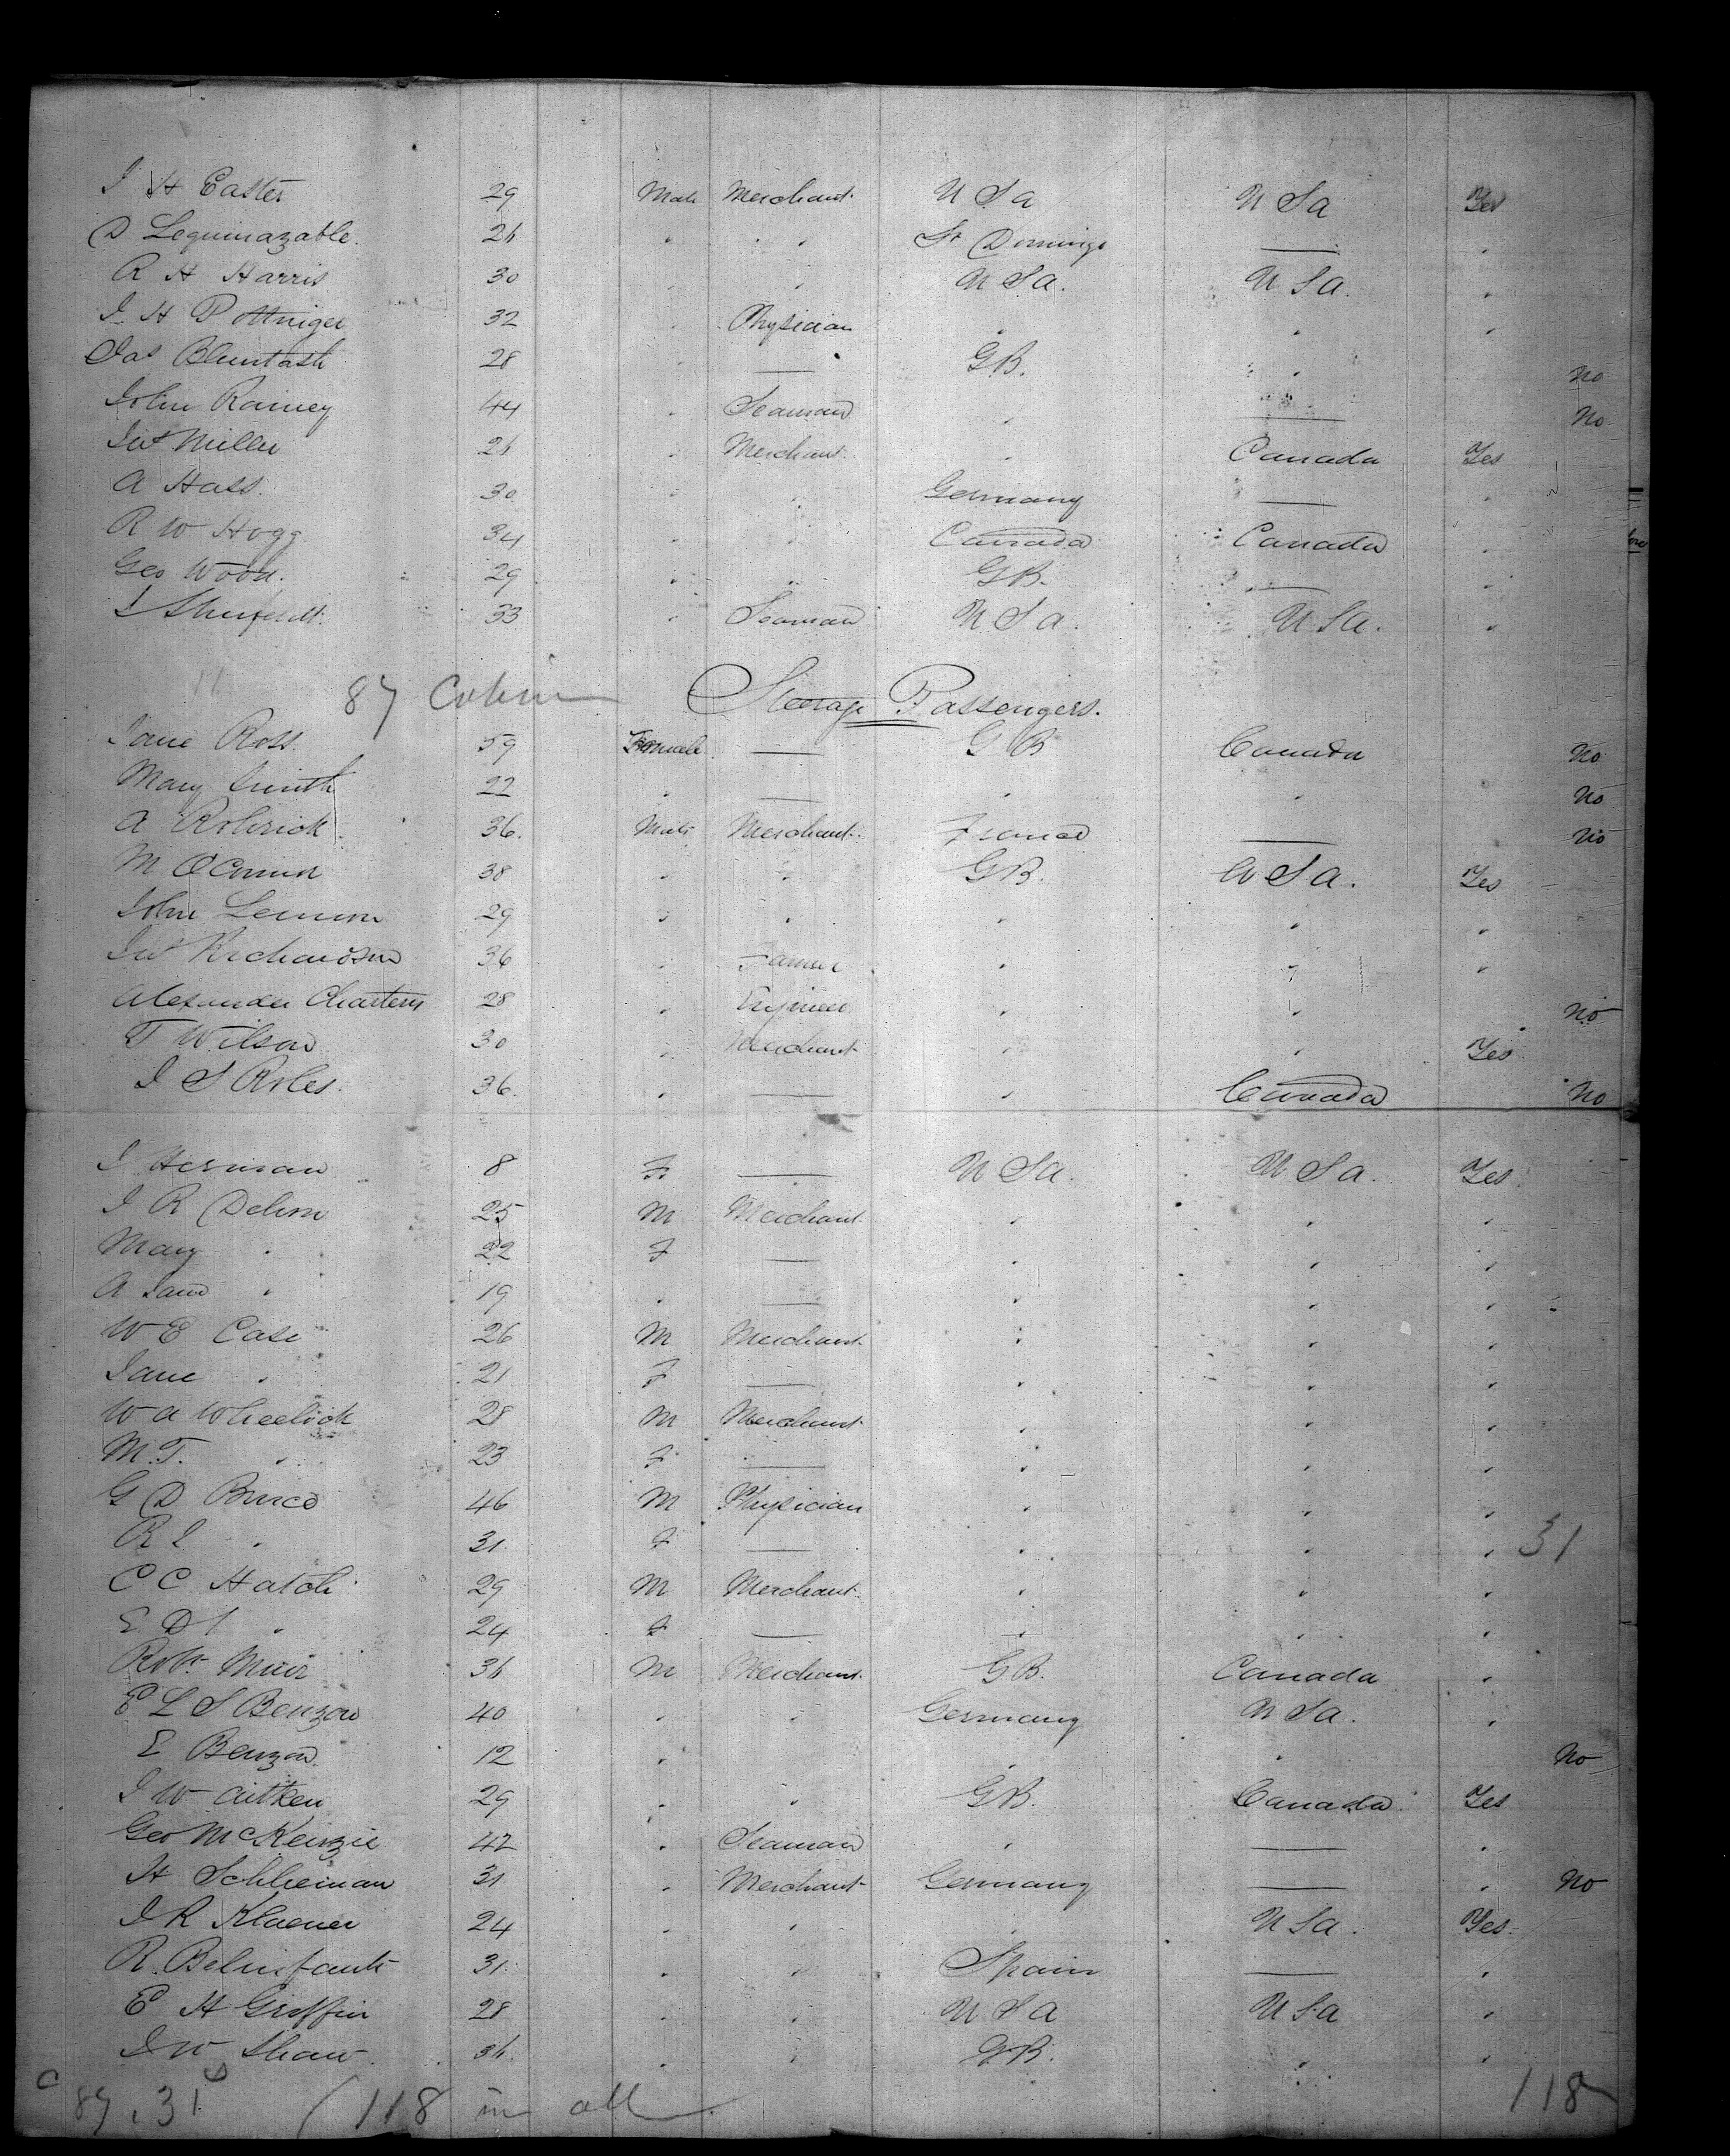 J H Easter 29 Male Merchant U S A U S A Yes
D Leguinazable 26 " " " St Domingo — "
R H Harris 30 " " U S A. U S A. "
J H Pottniger 32 " Physician " " "
Jas 28 " — G B. " No
John Rainey 44 " Seaman " — No
Jas Miller 26 " Merchant " Canada Yes
A Hass. 30 " " Germany — "
R W Hogg 34 " " Canada Canada "
Geo Wood. 29 " " G B. — "
33 " Seaman U S A. U S A. "
87 Cabin Steerage Passengers.
Jane Ross. 59 Female — G B Canada No
Mary Smith 22 " — " " No
A Robrick 36. Male Merchant. France — No
M O'Connor 38 " " G B. U S A. Yes
John Lennon 29 " " " " "
Jas Richardson 36 " Farmer " " "
Alexander Charters 28 " Engineer " " No
T Wilson 30 " Merchant " " Yes
J S Roles. 36. " — " Canada No
J Herman 8 F — U S A. U S A. Yes
J R Dehon 25 M Merchant " " "
Mary " 22 F — " " "
A Jane " 19 " — " " "
W E Case 26 M Merchant " " "
Jane " 21 F — " " "
W A Wheelock 28 M Merchant " " "
M. T. " 23 F — " " "
G D Bruce 46 M Physician " " "
R L " 31 F — " " " 31
C C Hatch 29 M Merchant " " "
E D " 24 F — " " "
Robt Muir 36 M Merchant G B. Canada "
E L S Benzon 40 " " Germany U S A. "
E Benzon. 12 " " " " No
J W Aitken 29 " " G B. Canada Yes
Geo McKenzie 42 " Seaman " — "
H Schlieman 31 " Merchant Germany — " No
J R Klaener 24 " " " U S A. Yes
R. Belinfante 31. " " Spain — "
E H Griffin 28 " " U S A U S A "
J W Shaw 36. " " G B. " "
C 87. 31 S (118 in all 118